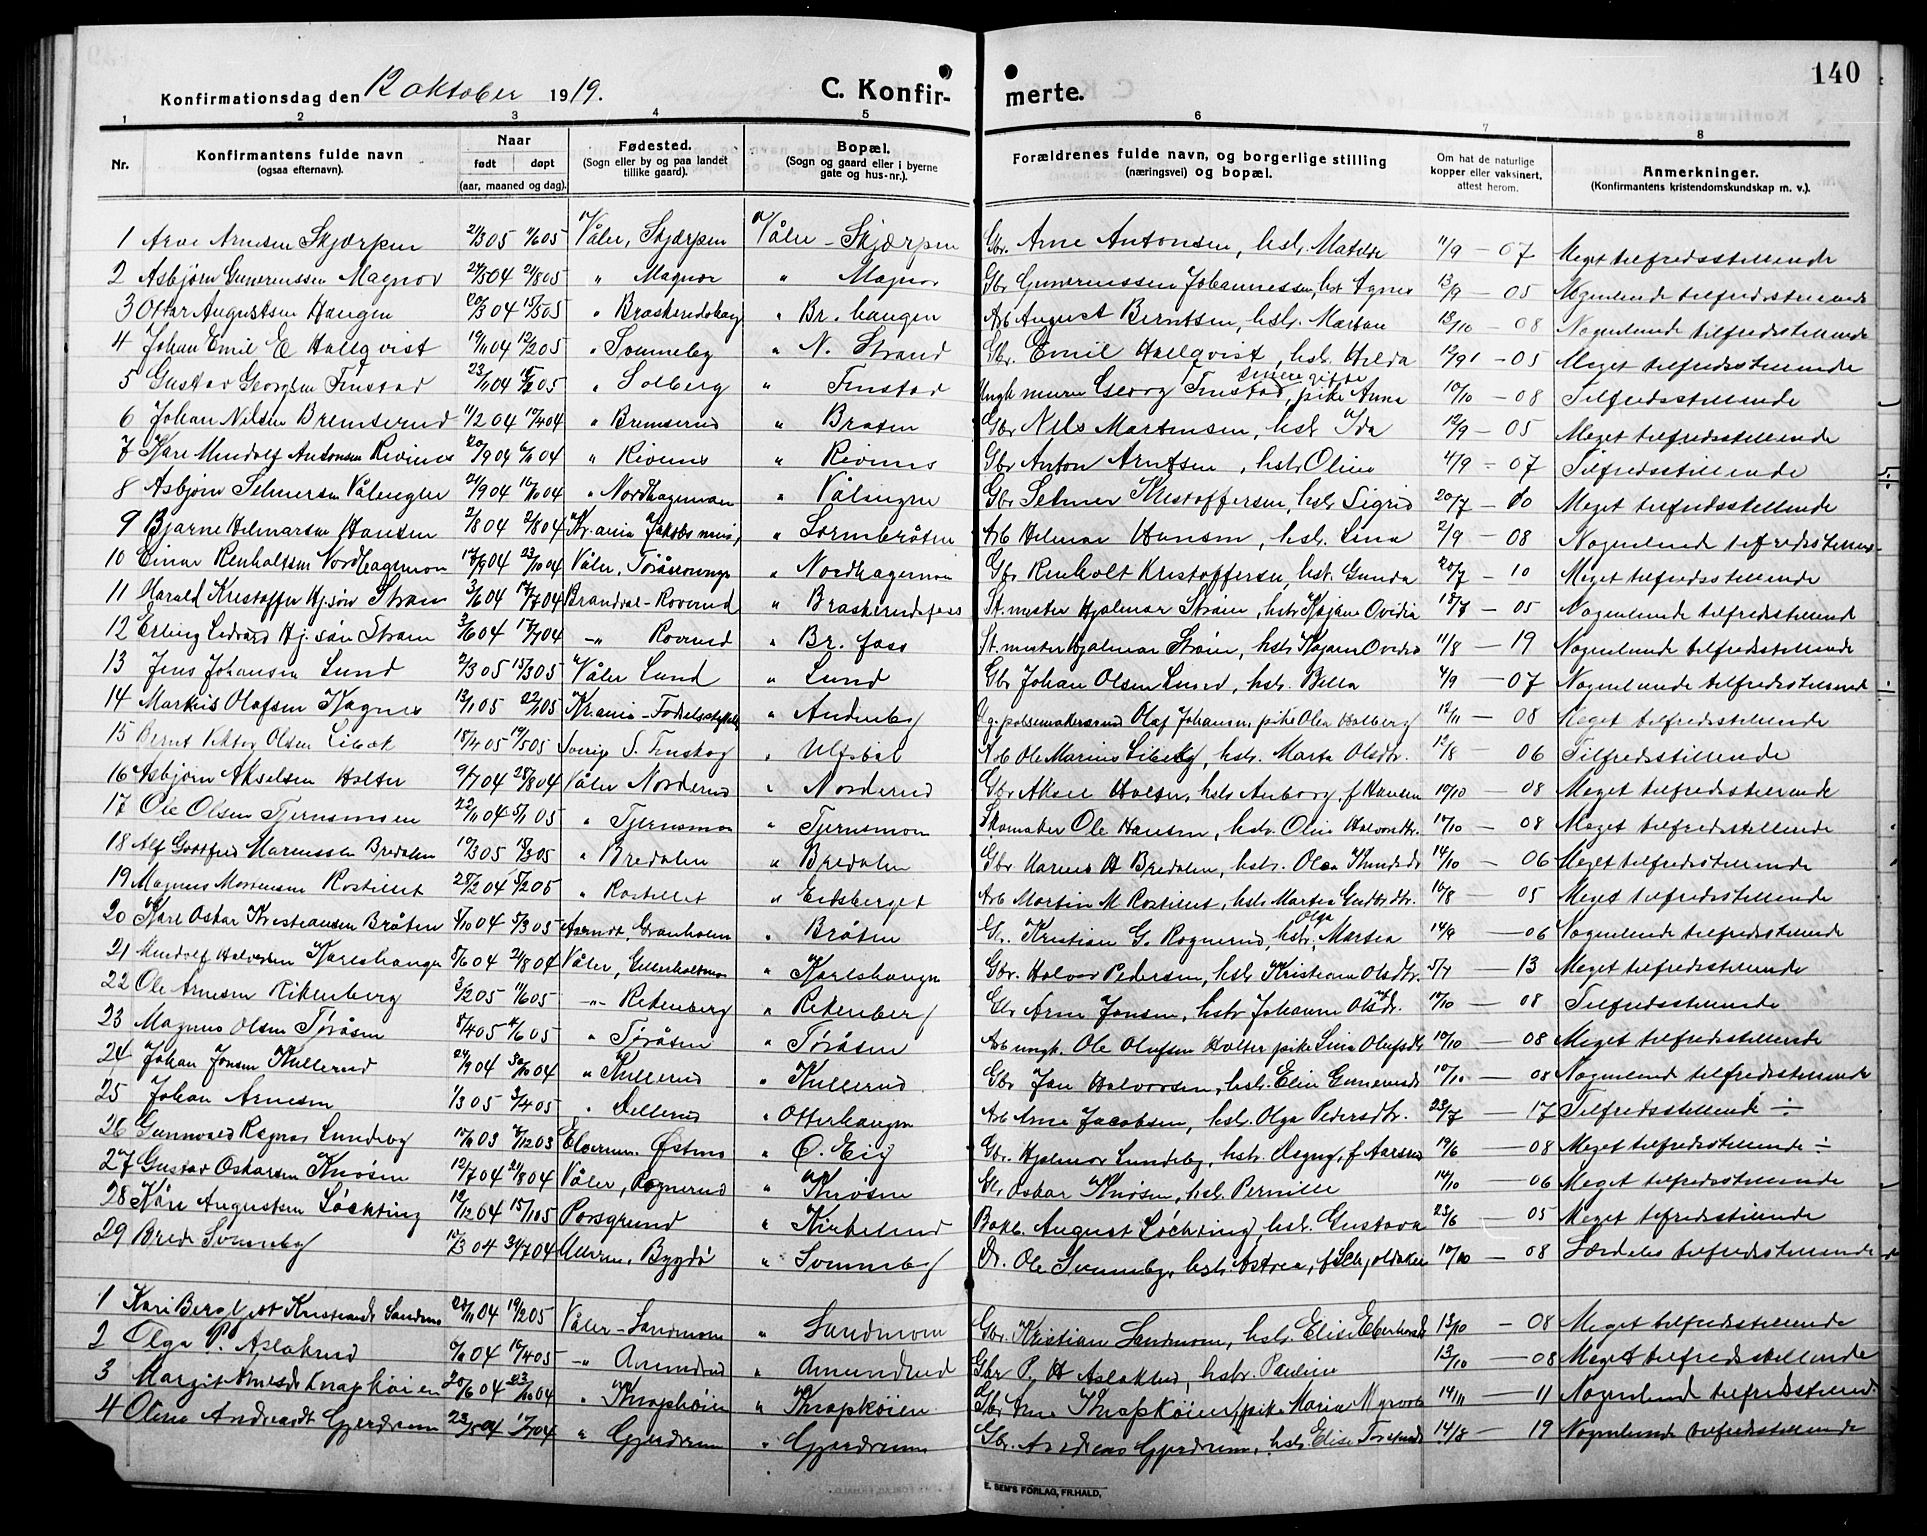 140
Konfirmationsdag den 12 oktober 1919.
C. Konfir-merte.
1 2 3 4 5 6 7 8
Nr.
Konfirmantens fulde navn
(ogsaa efternavn).
Naar
født døpt
(aar, maaned og dag).
Fødested.
(Sogn eller by og paa landet
tillike gaard).
Bopæl.
(Sogn og gaard eller i byerne
gate og hus-nr.).
Forældrenes fulde navn, og borgerlige stilling
(næringsvei) og bopæl.
Om hat de naturlige
kopper eller vaksinert,
attest herom.
Anmerkninger.
(Konfirmantens kristendomskundskap m. v.).
1 Arve Arnesen Skjærpen 2/3 05 11/6 05 Våler, Skjærpen Våler - Skjærpen Gbr. Arne Antonsen, hstr. Matilde 11/9 - 07 Meget tilfredsstillende
2 Asbjørn Magnor 04 05 " Magnor " Magnor Gbr Johannessen, Agnes 13/9 - 05 Nogenlunde tilfredsstillende
3 Ottar Augustsen Haugen 04 15/5 05 " " Br. haugen Arb August Berntsen, hstr. Martea 13/10 - 08 Nogenlunde tilfredsstillende
4 Johan Emil E Hallqvist 19/11 04 12/2 05 " Svenneby " N. Strand Gbr. Emil Hallqvist, hstr. Hilda 12/9 - 05 Meget tilfredsstillende
5 Gustav Georgsen Finstad 23/11 04 05 " Solberg " Finstad Ungk. murer Georg Finstad, pike Anna senere gifte 10/10 - 08 Tilfredsstillende
6 Johan Nilsen Bremserud 11/2 04 17/4 04 " Bremserud " Bråten Gbr Nils Martensen, hstr Ida 12/9 - 05 Meget tilfredsstillende
7 Kåre Mindolf Antonsen Rivenes 20/9 04 6/11 04 " Rivenes " Revenes Gbr Anton Arntsen, hstr Oline 11/9 - 07 Tilfredsstillende
8 Asbjørn Selmersen Vålengen 21/9 04 16/10 04 " Nordhagemoen " Vålengen Gbr Selmer Kristoffersen, hstr Sigrid 20/7 - 10 Meget tilfredsstillende
9 Bjarne Helmarsen Hansen 2/8 04 2/8 04 Kr.ania " Sormbråten Arb Helmar Hansen, hstr. Lina 2/9 - 08 Nogenlund tilfredsstillende
10 Einar Renholtsen Nordhagemoen 17/9 04 23/10 04 Våler, " Nordhagemoen Gbr Renholt Kristoffersen, hstr. Gunda 20/7 - 10 Meget tilfredsstillende
11 Harald Kristoffer Hj.søn Strøm 3/6 04 17/7 04 Brandval - Roverud " Braskerudsfoss St.mester Hjalmar Strøm, hstr Kajane Ovidia 18/7 - 05 Nogenlunde tilfredsstillende
12 Erling Edvard Hj.søn Strøm 3/6 04 17/7 04 -"- Roverud " Br. foss St.mester Hjalmar Strøm, hstr Kajane Ovidia 11/8 - 19 Nogenlunde tilfredsstillende
13 Jens Johansen Lund 2/3 05 15/3 05 Våler Lund " Lund Gbr Johan Olsen Lund, hstr. Bella 4/9 - 07 Nogenlunde tilfredsstillende
14 Markus Olafsen Kagnes 13/1 05 22/1 05 Kr.ania - Fødselsstiftelse " Anderby Olaf Johansen, pike Olea Holberg 12/11 - 08 Meget tilfredsstillende
15 Bernt Viktor Olsen Libæk 18/4 05 14/5 05 Sverig S. Finskog " Ulfsbøl Arb Ole Marius Libæk, hstr. Marta Olsdtr. 12/8 06 Tilfredsstillende
16 Asbjørn Akselsen Holter 9/7 04 28/8 04 Våler Norderud " Norderud Gbr Aksel Holter, hstr Anborg, f. Hansen 10/10 - 08 Meget tilfredsstillende
17 Ole Olsen Tjernsmoen 22/11 04 5/1 05 " Tjernsmoen " Tjernsmoen Skomaker Ole Hansen, hstr. Oline Halvorsdtr. 17/10 - 08 Meget tilfredsstillende
18 Alf Gottfred Mariussen Bredalen 17/3 05 18/3 05 " Bredalen " Bredalen Gbr Marius H Bredalen, hstr. Olea Knudsdtr 14/10 - 06 Meget tilfredsstillende
19 Magnus Mortensen Rostillet 28/2 04 5/2 05 " Rostillet " Eidsberget Arb Martin M Rostillet, hstr Martea 10/8 05 Meget tilfredsstillende
20 Karl Oskar Kristiansen Bråten 5/10 04 5/3 05 Aasndt, Granholm " Bråten Gbr. Kristian G. Rognerud, hstr. Olga Martea 14/9 - 06 Nogenlunde tilfredsstillende
21 Mindolf Halvorsen Karlshaugen 5/6 04 21/8 04 Våler, " Karlshaugen Gbr. Halvor Pedersen, hstr Kristiane Olsdtr. 5/7 - 13 Meget tilfredsstillende
22 Ole Arnesen Rikenberg 3/2 05 11/6 05 -"- Rekenberg " Rekenberg Gbr Arne Jonsen, hstr Johanne Olsdtr. 10/10 - 08 Tilfredsstillende
23 Magnus Olsen Toråsen 8/4 05 11/6 05 " Toråsen " Toråsen Arb ungk. Ole Olufsen Holter pike Lina Olufsdtr 10/10 - 08 Meget tilfredsstillende
24 Johan Jonsen Kullerud 24/9 04 30/10 04 " Kullerud " Kullerud Gbr Jon Halvorsen, hstr. Eline 10/10 - 08 Nogenlund tilfredsstillende
25 Johan Arnesen 1/3 05 3/4 05 " " Otterhaugen Arb Arne Jacobsen, hstr Olga Pedersdtr. 23/7 - 17 Tilfredsstillende ÷
26 Gunnvald Ragnar Lundeby 17/6 03 03 Elverum. Østmo " Ø. Eid Gbr. Hjalmar Lundeby, hstr. Dagny, f Aarsrud 19/6 - 08 Meget tilfredsstillende ÷
27 Gustav Oskarsen Knøsen 12/7 04 21/8 04 Våler, Rognerud " Knøsen Gbr Oskar Knøsen, hstr. Pernille 14/10 - 06 Meget tilfredsstillende
28 Kåre Augustsen Løchting 12/12 04 15/1 05 Porsgrund " Kirkelund Bokh. August Løchting, hstr. Gustava 23/6 - 05 Meget tilfredsstillende
29 Brede Svenneby 15/3 04 31/7 04 Ullern, Bygdø " Svenneby Dr. Ole Svenneby, hstr. Astrea, f. 10/10 - 08 Særdeles tilfredsstillende
1 Kari Bergljot Kristiansd. Sandmo 28/11 04 19/2 05 Våler - Sandmoen " Sandmoen Gbr. Kristian Sandmoen, hstr. Elise 13/10 - 08 Meget tilfredsstillende
2 Olga P. Aslakrud 6/11 04 16/4 05 -"- Amundrud " Amundrud Gbr P. H Aslakrud, hstr. Pauline 13/10 - 08 Meget tilfredsstillende
3 Margit Knapkøien 20/6 04 23/10 04 " Knapkøien " Knapkøien Gbr Arne Knapkøien, pike Maria Myrvold 14/11 - 11 Nogenlund tilfredsstillend.
4 Oline Andreasdt Gjerdrum 23/5 04 17/7 04 " Gjerdrum " Gjerdrum Gbr. Andreas Gjerdrum, hstr Elise 14/8 - 19 Nogenlunde tilfredsstillende
E. SEM'S FORLAG, FR.HALD.